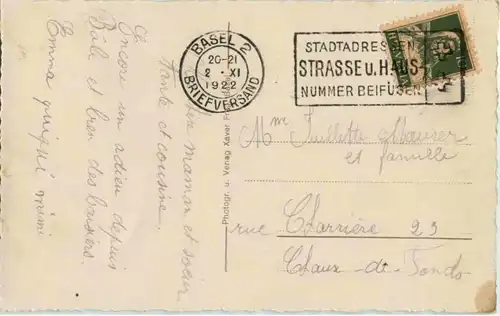 BASEL 2
20-21
2 · XI
1922
BRIEFVERSAND
STADTADRESSEN
STRASSE u. HAUS-
NUMMER BEIFÜGEN
Photogr. u. Verlag Xaver
Ch ère maman et soeur
tante et cousine.
Encore un adieu depuis
Bâle et bien des baisers.
Emma mimi
Mme Juliette
et famille
rue Charrière 23
Chaux-de-Fonds